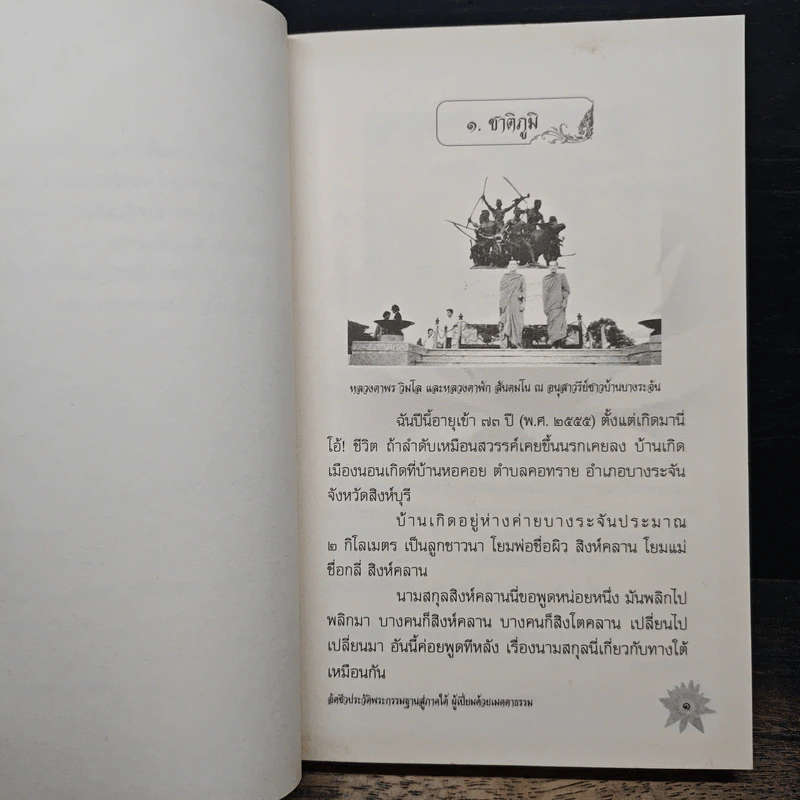 ๑. ชาติภูมิ
หลวงตาพร วิมโล และหลวงตาพัก สันตมโน ณ อนุสาวรีย์ชาวบ้านบางระจัน
ฉันปีนี้อายุเข้า ๗๓ ปี (พ.ศ. ๒๕๕๕) ตั้งแต่เกิดมานี่
โอ้! ชีวิต ถ้าลำดับเหมือนสวรรค์เคยขึ้นนรกเคยลง บ้านเกิด
เมืองนอนเกิดที่บ้านหอคอย ตำบลคอทราย อำเภอบางระจัน
จังหวัดสิงห์บุรี
บ้านเกิดอยู่ห่างค่ายบางระจันประมาณ
๒ กิโลเมตร เป็นลูกชาวนา โยมพ่อชื่อผิว สิงห์คลาน โยมแม่
ชื่อกลี่ สิงห์คลาน
นามสกุลสิงห์คลานนี่ขอพูดหน่อยหนึ่ง มันพลิกไป
พลิกมา บางคนก็สิงห์คลาน บางคนก็สิงโตคลาน เปลี่ยนไป
เปลี่ยนมา อันนี้ค่อยพูดทีหลัง เรื่องนามสกุลนี่เกี่ยวกับทางใต้
เหมือนกัน
อัตชีวประวัติพระกรรมฐานสู่ภาคใต้ ผู้เปี่ยมด้วยเมตตาธรรม
๑